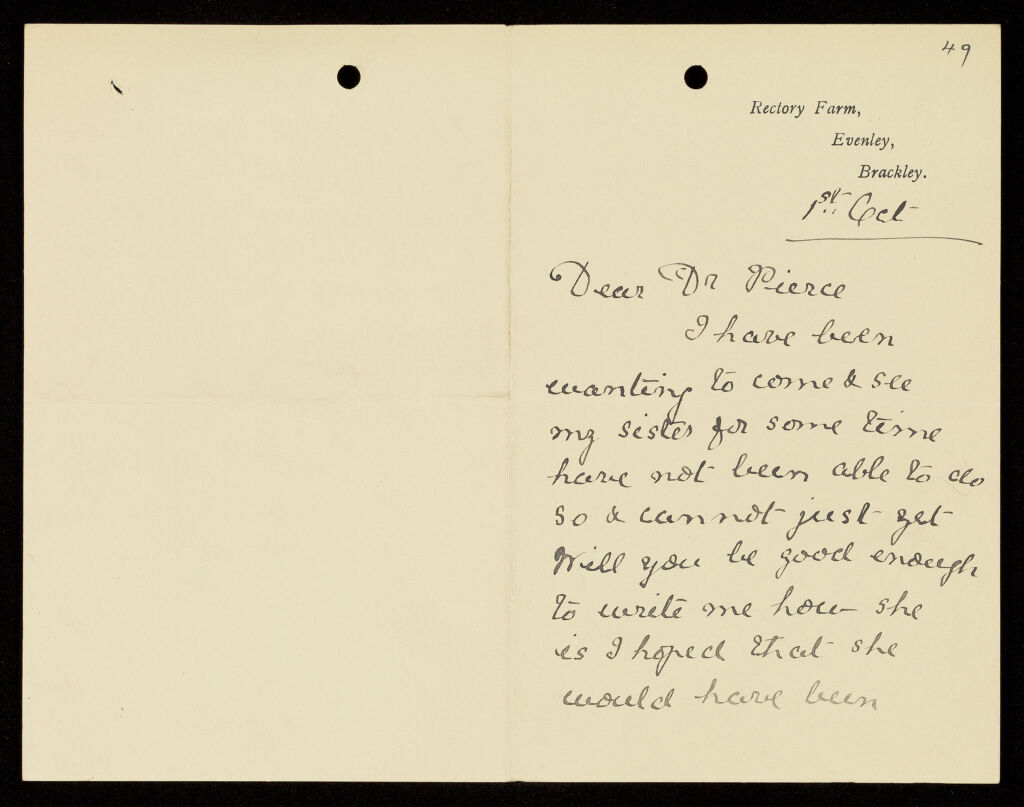 49
Rectory Farm,
Evenley,
Brackley.
1st Oct
Dear Dr Pierce
I have been
wanting to come & see
my sister for some time
have not been able to do
so & cannot just yet
Will you be good enough
to write me how she
is I hoped that she
would have been